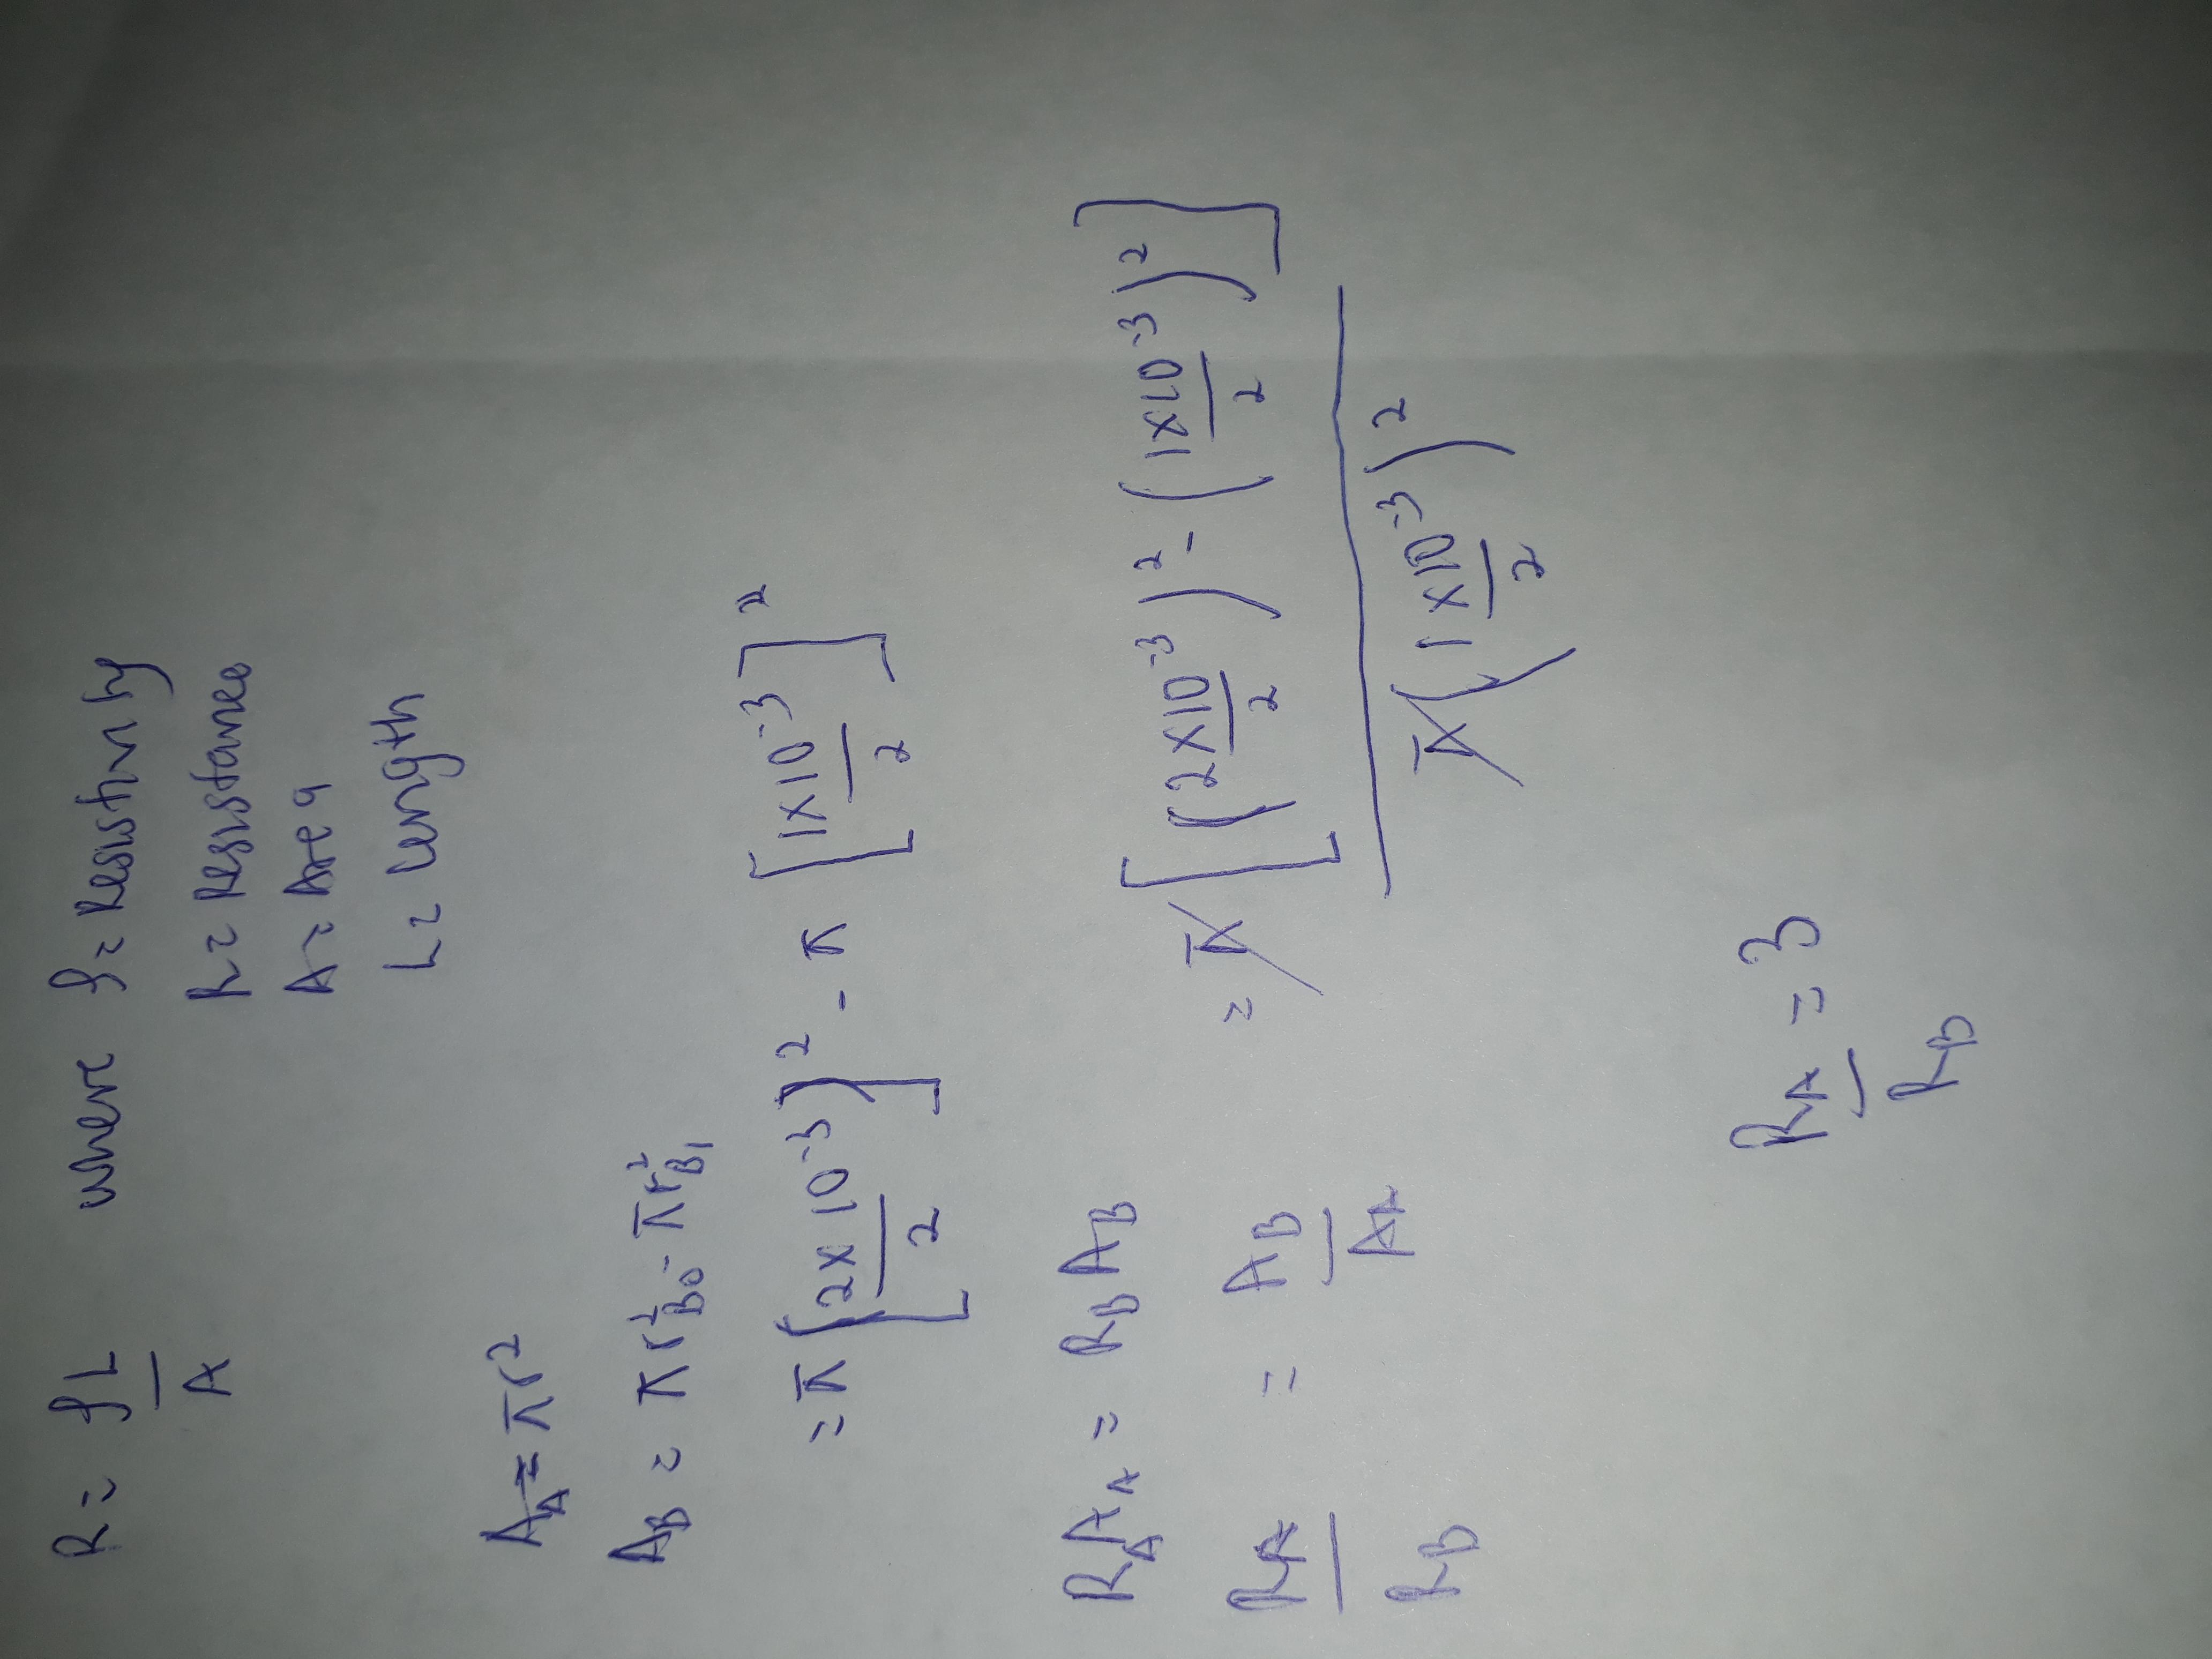 R = ρL/A where ρ = Resistivity
R = Resistance
A = Area
L = Length
A_A = πr²
A_B = πr²_Bo - πr²_B1
= π[(2×10⁻³)/2]² - π[(1×10⁻³)/2]²
R_A A_A = R_B A_B
R_A/R_B = A_B/A_A = π[((2×10⁻³)/2)² - ((1×10⁻³)/2)²]/π((1×10⁻³)/2)²
R_A/R_B = 3